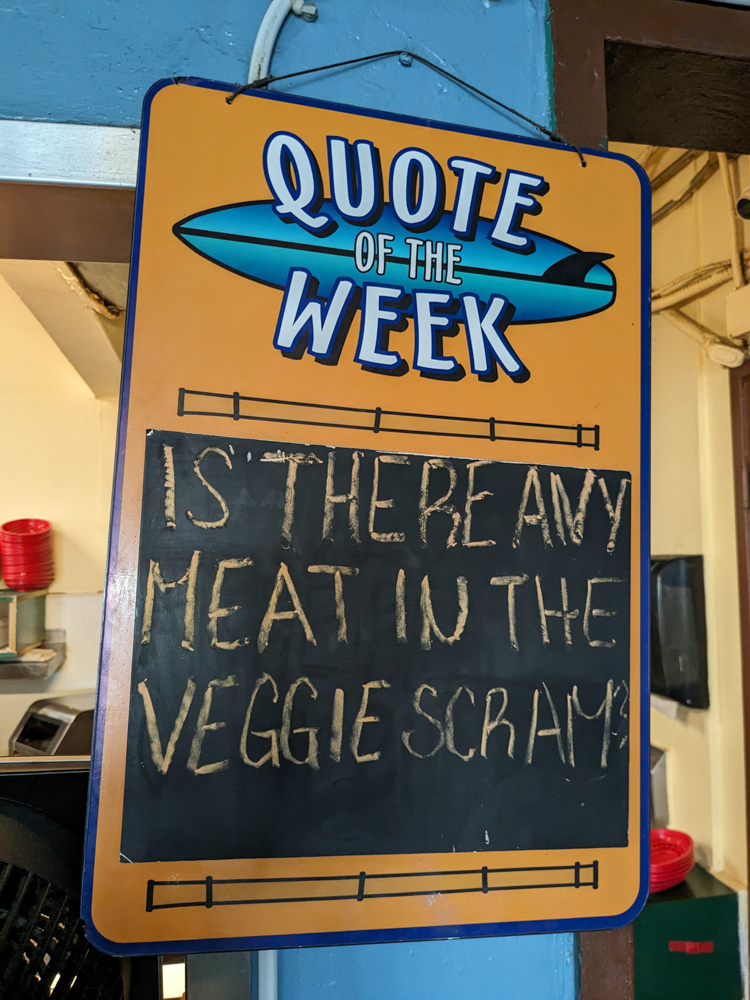 QUOTE
OF THE
WEEK
IS THERE ANY
MEAT IN THE
VEGGIE SCRAM?